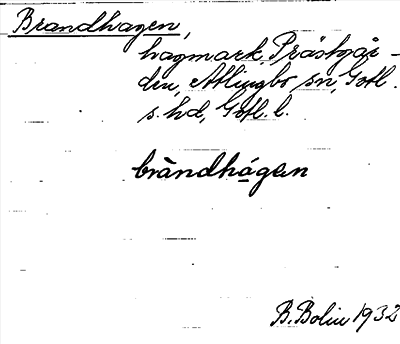 Brandhagen,
hagmark, Prästgår-
den, Atlingbo sn, Gotl.
s. hd, Gotl. l.
bràndhágan
B. Bolin 1932